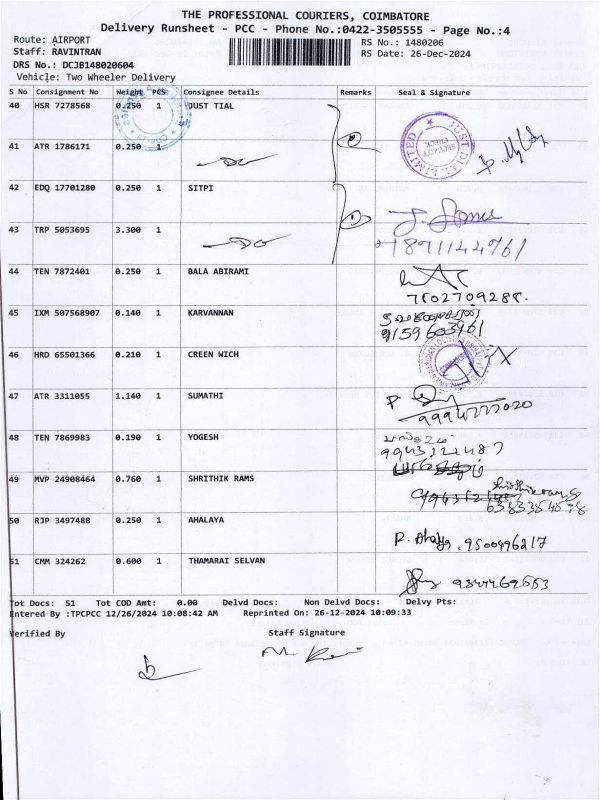 THE PROFESSIONAL COURIERS, COIMBATORE
Delivery Runsheet - PCC - Phone No.:0422-3505555 - Page No.:4
Route: AIRPORT
RS No.: 1480206
Staff: RAVINTRAN
RS Date: 26-Dec-2024
DRS No.: DCJB148020604
Vehicle: Two Wheeler Delivery
S No Consignment No Weight PCS Consignee Details Remarks Seal & Signature
40 HSR 7278568 0.250 1 JUST TIAL
JUST DIAL LIMITED
SECURITY CHECK
41 ATR 1786171 0.250 1
42 EDQ 17701280 0.250 1 SITPI
43 TRP 5053695 3.300 1
44 TEN 7872401 0.250 1 BALA ABIRAMI
7502709288.
45 IXM 507568907 0.140 1 KARVANNAN
9159603961
46 HRD 65501366 0.210 1 CREEN WICH
47 ATR 3311055 1.140 1 SUMATHI
48 TEN 7869983 0.190 1 YOGESH
49 MVP 24908464 0.760 1 SHRITHIK RAMS
50 RJP 3497488 0.250 1 AHALAYA
P. Ahalya. 9500496217
51 CMM 324262 0.600 1 THAMARAI SELVAN
Tot Docs: 51 Tot COD Amt: 0.00 Delvd Docs: Non Delvd Docs: Delvy Pts:
Entered By :TPCPCC 12/26/2024 10:08:42 AM Reprinted On: 26-12-2024 10:09:33
Verified By Staff Signature